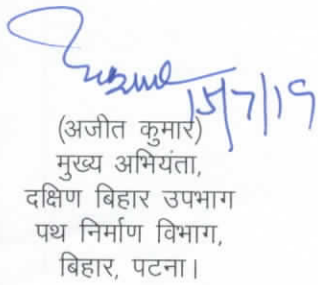 15/7/19
(अजीत कुमार)
मुख्य अभियंता,
दक्षिण बिहार उपभाग
पथ निर्माण विभाग,
बिहार, पटना।